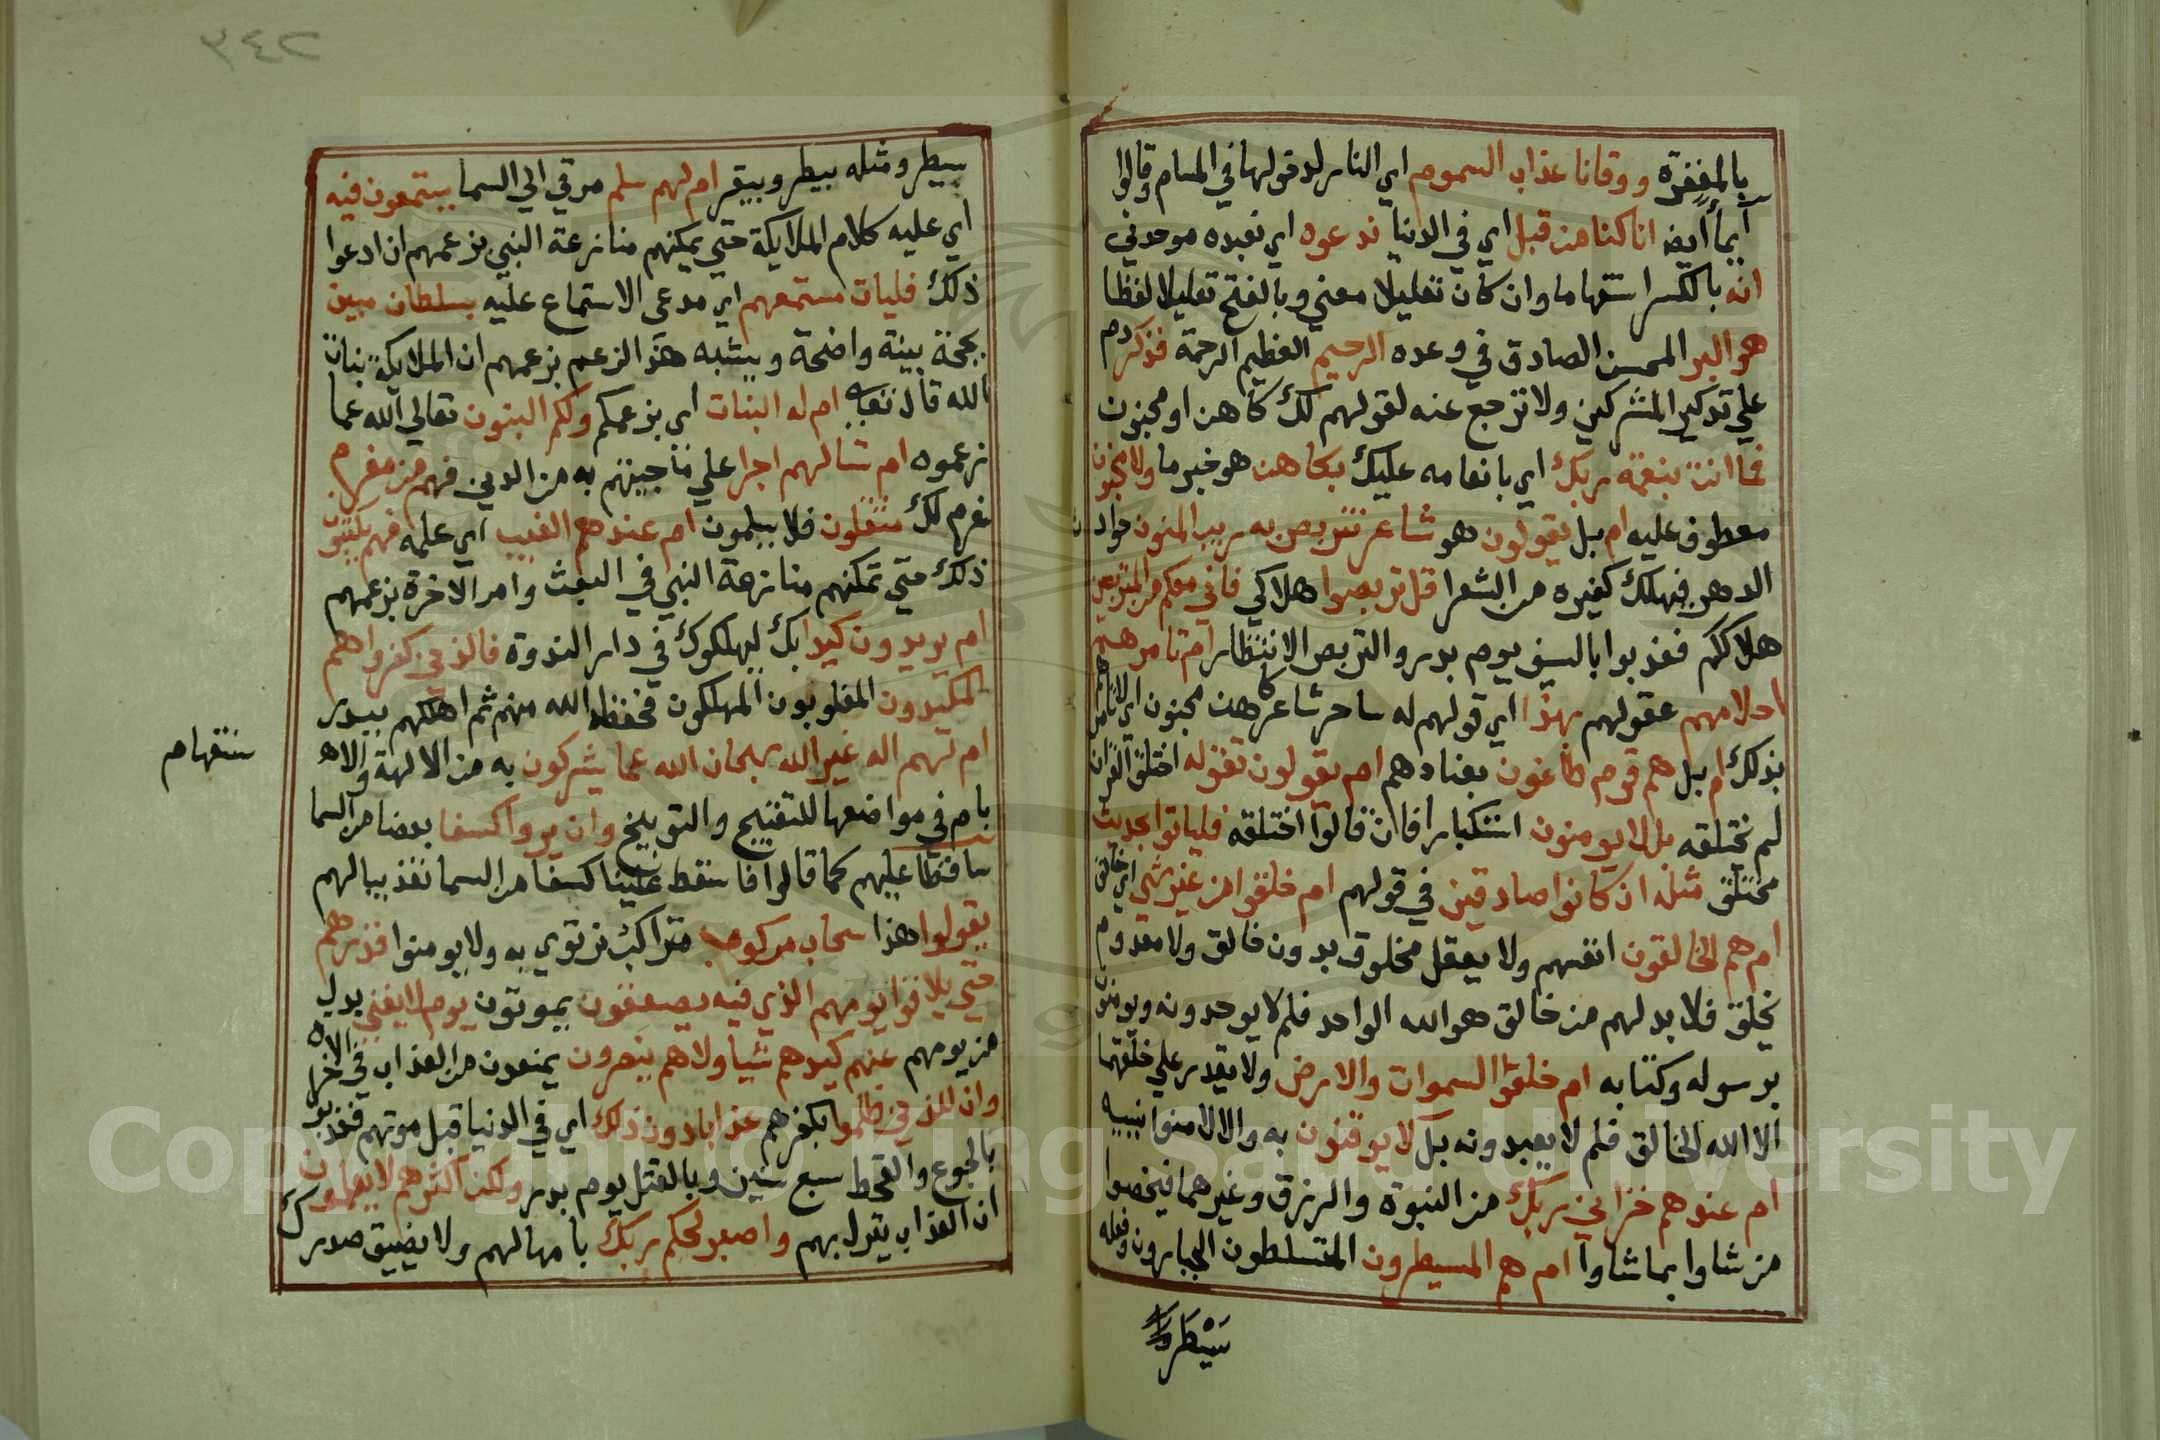 بالمغفرة ووقانا عذاب السموم اي النار لدخولها في المسام وقالوا
ايماأيضا اناكنا من قبل اي في الدنيا ندعوه اي نعبده موحدين
انه بالكسر استنهاما وان كان تعليلا معني وبالفتح تعليلا لفظا
هو البر المحسن الصادق في وعده الرحيم العظيم الرحمة فذكر دم
علي تذكير المشركين ولا ترجع عنه لقولهم لك كاهن او مجنون
فما انت بنعمة ربك اي بانعامه عليك بكاهن هو خبر ما ولا مجنون
معطوف عليه ام بل يقولون هو شاعر نتربص به ريب المنون حوادث
الدهر فيهلك كغيره من الشعرا قل تربصوا هلاكي فاني معكم من المتربصين
هلاككم فعذبوا بالسيف يوم بدر والتربص الانتظار ام تامرهم
احلامهم عقولهم بهذا اي قولهم له ساحر شاعر كاهن مجنون اي لا تامرهم
بذلك ام بل هم قوم طاغون بعنادهم ام يقولون تقوله اختلق القران
لم يختلقه بل لا يومنون استكبارا فان قالوا اختلقه فلياتوا بحديث
مختلق مثله ان كانوا صادقين في قولهم ام خلقوا من غير شي اي خالق
ام هم الخالقون انفسهم ولا يعقل مخلوق بدون خالق ولا معدوم
يخلق فلا بد لهم من خالق هو الله الواحد فلم لا يوحدونه ويومنون
برسوله وكتابه ام خلقوا السموات والارض ولا يقدر علي خلقهما
الا الله الخالق فلم لا يعبدونه بل لا يوقنون به والا لامنوا بنبيه
ام عندهم خزاين ربك من النبوة والرزق وغيرهما فيخصوا
من شاوا بما شاوا ام هم المسيطرون المتسلطون الجبارون وفعله
سَيْطَر
سيطر ومثله بيطر وبيقر ام لهم سلم مرقي الي السما يستمعون فيه
اي عليه كلام الملايكة حتي يمكنهم منازعة النبي بزعمهم ان ادعوا
ذلك فليات مستمعهم اي مدعي الاستماع عليه بسلطان مبين
بحجة بينة واضحة ويشبه هذا الزعم بزعمهم ان الملايكة بنات
الله قال تعالي ام له البنات اي بزعمكم ولكم البنون تعالي الله عما
زعموه ام تسالهم اجرا علي ما جيتهم به من الدين فهم من مغرم
غرم لك مثقلون فلا يسلمون ام عندهم الغيب اي علمه فهم يكتبون
ذلك حتي تمكنهم منازعة النبي في البعث وامر الاخرة بزعمهم
ام يريدون كيدا بك ليهلكوك في دار الندوة فالذين كفروا هم
المكيدون المغلوبون المهلكون فحفظه الله منهم ثم اهلكهم ببدر
ام لهم اله غير الله سبحان الله عما يشركون به من الالهة والاه
ستفهام
بام في مواضعها للتقبيح والتوبيخ وان يروا كسفا بعضا من السما
ساقطا عليهم كما قالوا فاسقط علينا كسفا من السما تعذيبا لهم
يقولوا هذا سحاب مركوم متراكب نرتوي به ولا يومنوا فذرهم
حتي يلاقوا يومهم الذي فيه يصعقون يموتون يوم لا يغني بدل
من يومهم عنهم كيدهم شيا ولا هم ينصرون يمنعون من العذاب في الاخرة
وان للذين ظلموا بكفرهم عذابا دون ذلك اي في الدنيا قبل موتهم فعذبوا
بالجوع والقحط سبع سنين وبالقتل يوم بدر ولكن اكثرهم لا يعلمون
ان العذاب ينزل بهم واصبر لحكم ربك بامهالهم ولا يضيق صدرك
Copyright © King Saud University